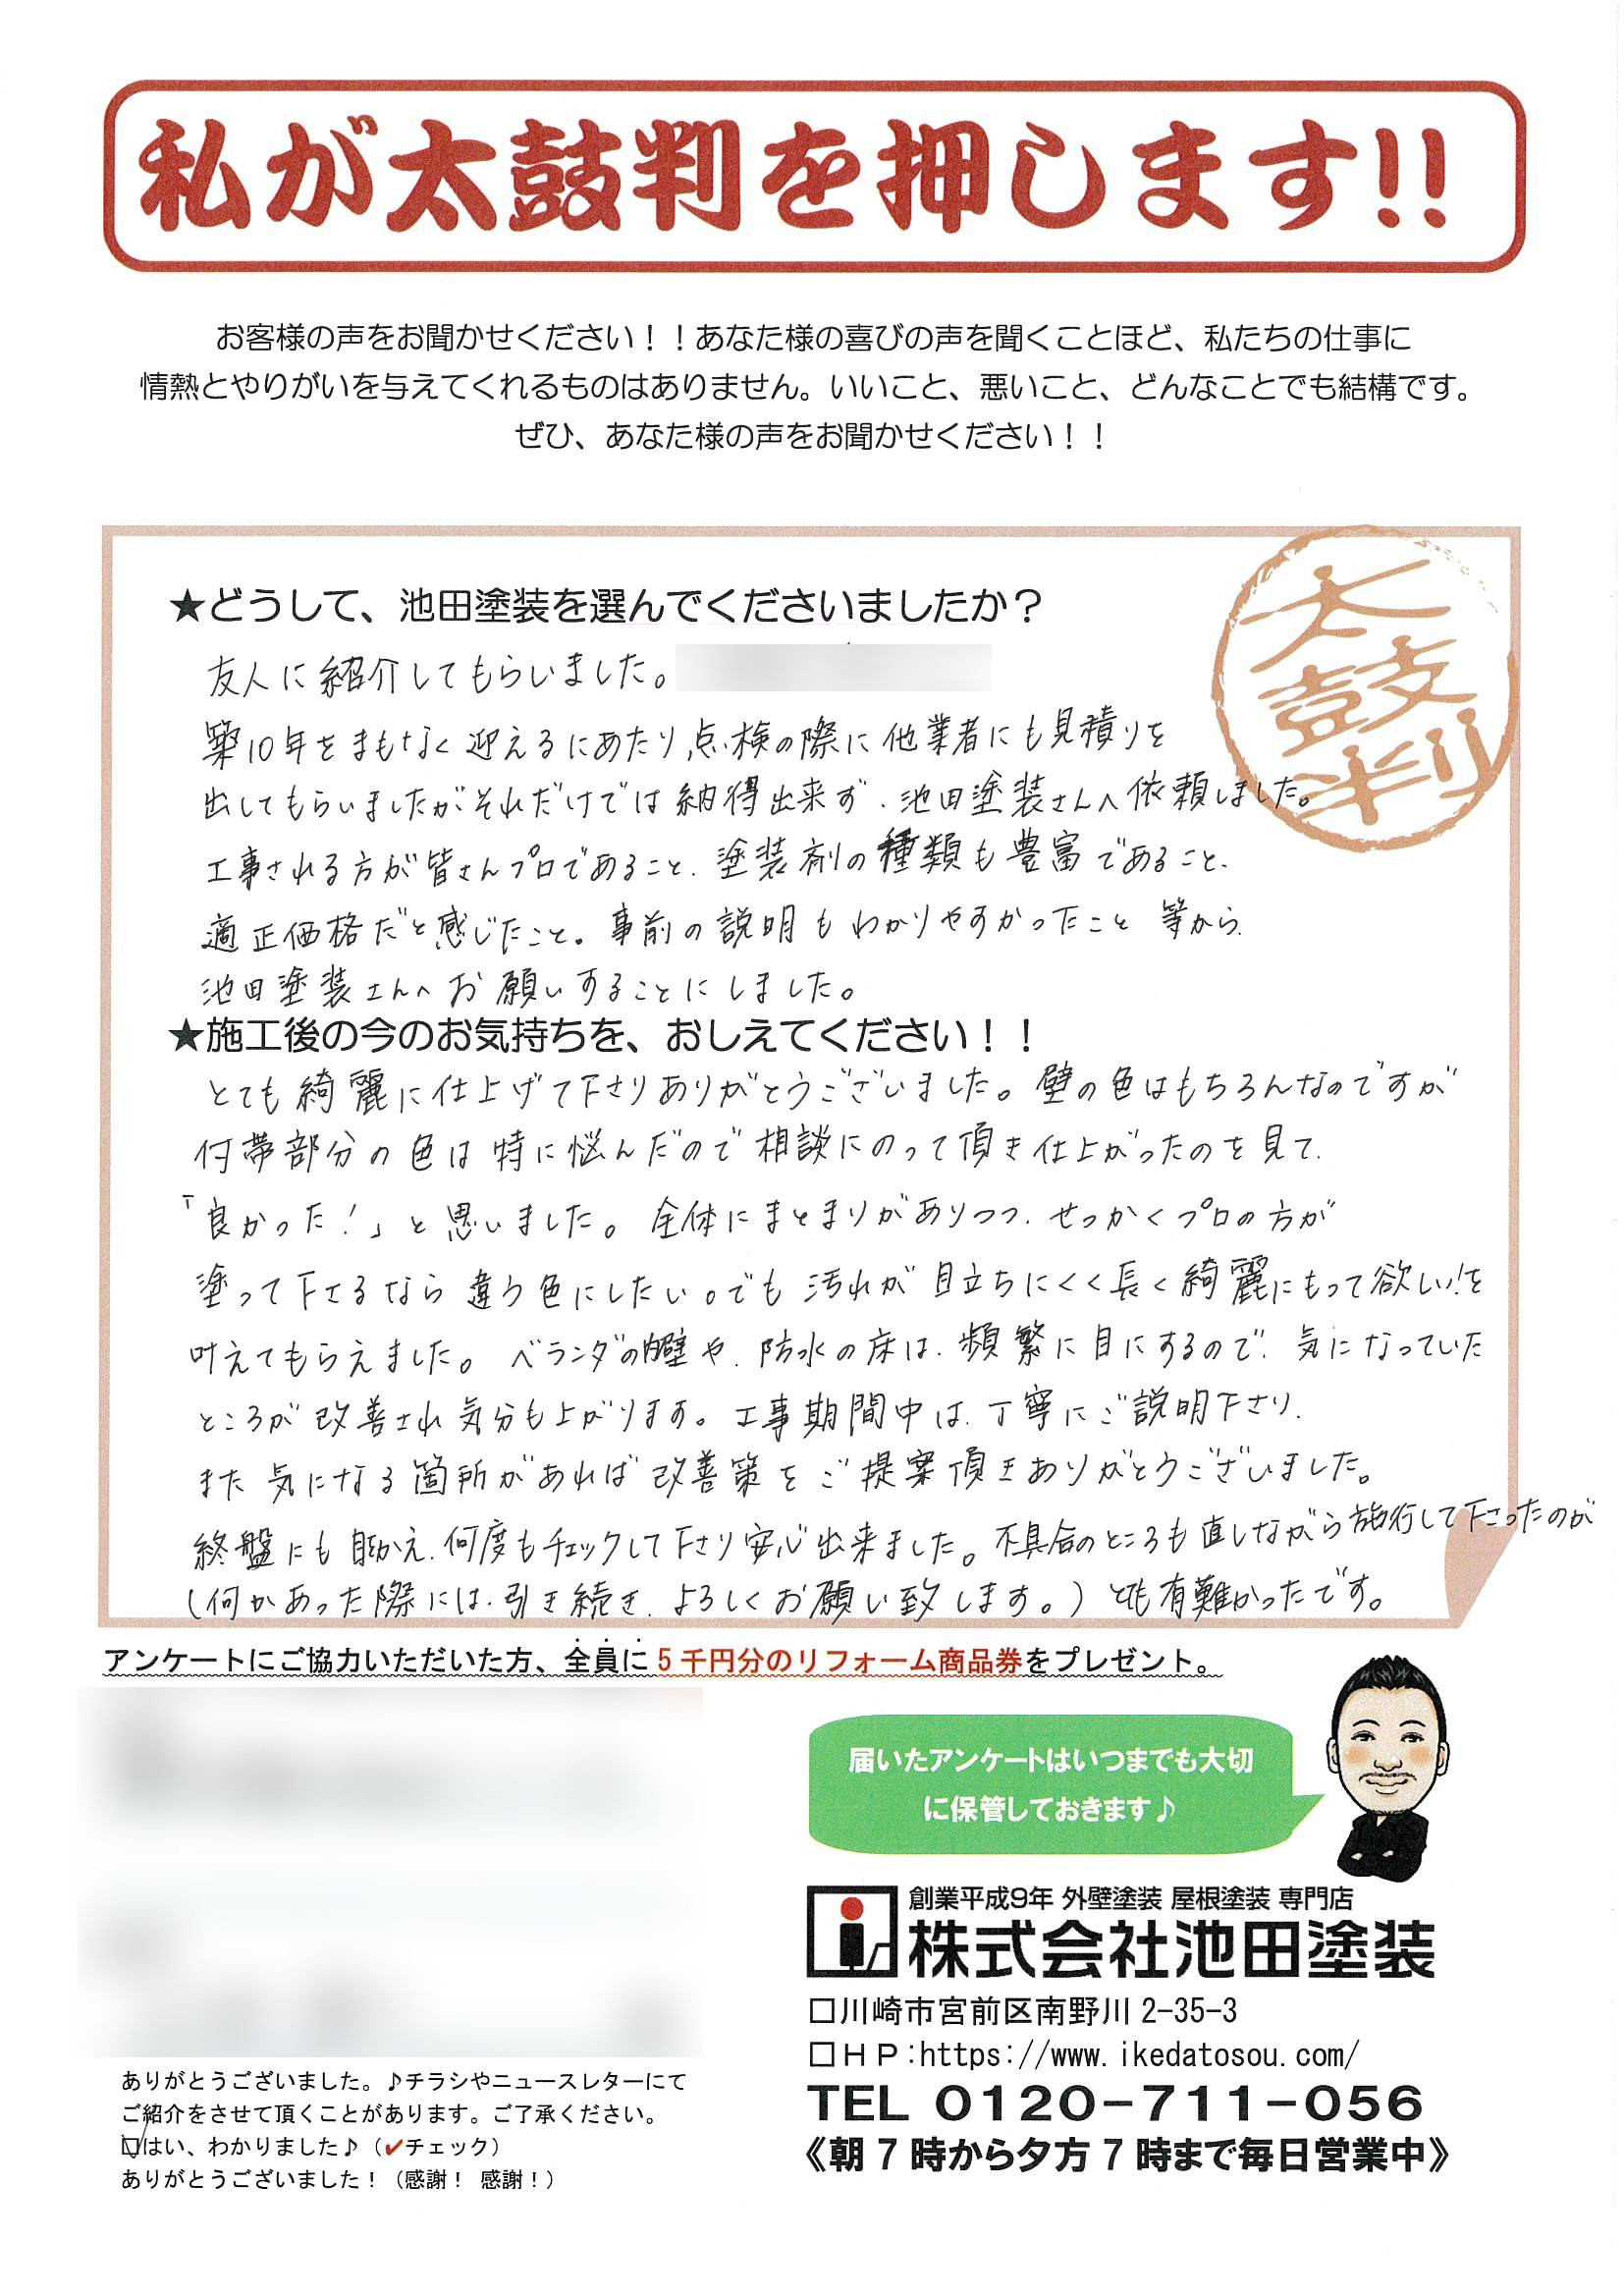 私が太鼓判を押します!!
お客様の声をお聞かせください！！あなた様の喜びの声を聞くことほど、私たちの仕事に
情熱とやりがいを与えてくれるものはありません。いいこと、悪いこと、どんなことでも結構です。
ぜひ、あなた様の声をお聞かせください！！
太鼓判
★どうして、池田塗装を選んでくださいましたか？
友人に紹介してもらいました。
築10年をまもなく迎えるにあたり、点検の際に他業者にも見積りを
出してもらいましたがそれだけでは納得出来ず、池田塗装さんへ依頼しました。
工事される方が皆さんプロであること、塗装剤の種類も豊富であること、
適正価格だと感じたこと。事前の説明もわかりやすかったこと 等から、
池田塗装さんへお願いすることにしました。
★施工後の今のお気持ちを、おしえてください！！
とても綺麗に仕上げて下さりありがとうございました。壁の色はもちろんなのですが
付帯部分の色は特に悩んだので相談にのって頂き仕上がったのを見て、
「良かった！」と思いました。全体にまとまりがありつつ、せっかくプロの方が
塗って下さるなら違う色にしたい。でも汚れが目立ちにくく長く綺麗にもって欲しい！を
叶えてもらえました。ベランダの内壁や、防水の床は、頻繁に目にするので、気になっていた
ところが改善され気分も上がります。工事期間中は、丁寧にご説明下さり、
また気になる箇所があれば改善策をご提案頂きありがとうございました。
終盤にも、何度もチェックして下さり安心出来ました。不具合のところも直しながら施行して下さったのが
(何かあった際には、引き続き、よろしくお願い致します。) とても有難かったです。
アンケートにご協力いただいた方、全員に5千円分のリフォーム商品券をプレゼント。
届いたアンケートはいつまでも大切
に保管しておきます♪
創業平成9年 外壁塗装 屋根塗装 専門店
株式会社池田塗装
□川崎市宮前区南野川2-35-3
□ＨＰ:https://www.ikedatosou.com/
TEL 0120-711-056
《朝7時から夕方7時まで毎日営業中》
ありがとうございました。♪チラシやニュースレターにて
ご紹介をさせて頂くことがあります。ご了承ください。
☑はい、わかりました♪（✔チェック）
ありがとうございました！（感謝！ 感謝！）